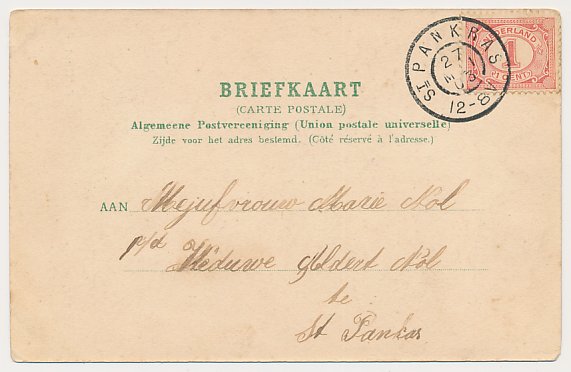 ST PANKRAS
27
NOV
03
12-8
NEDERLAND
1
(1 CENT)
BRIEFKAART
(CARTE POSTALE)
Algemeene Postvereeniging (Union postale universelle)
Zijde voor het adres bestemd. (Côté réservé à l'adresse.)
AAN Mejufvrouw Marie Nol
p/d Weduwe Aldert Nol
te
St Pankas